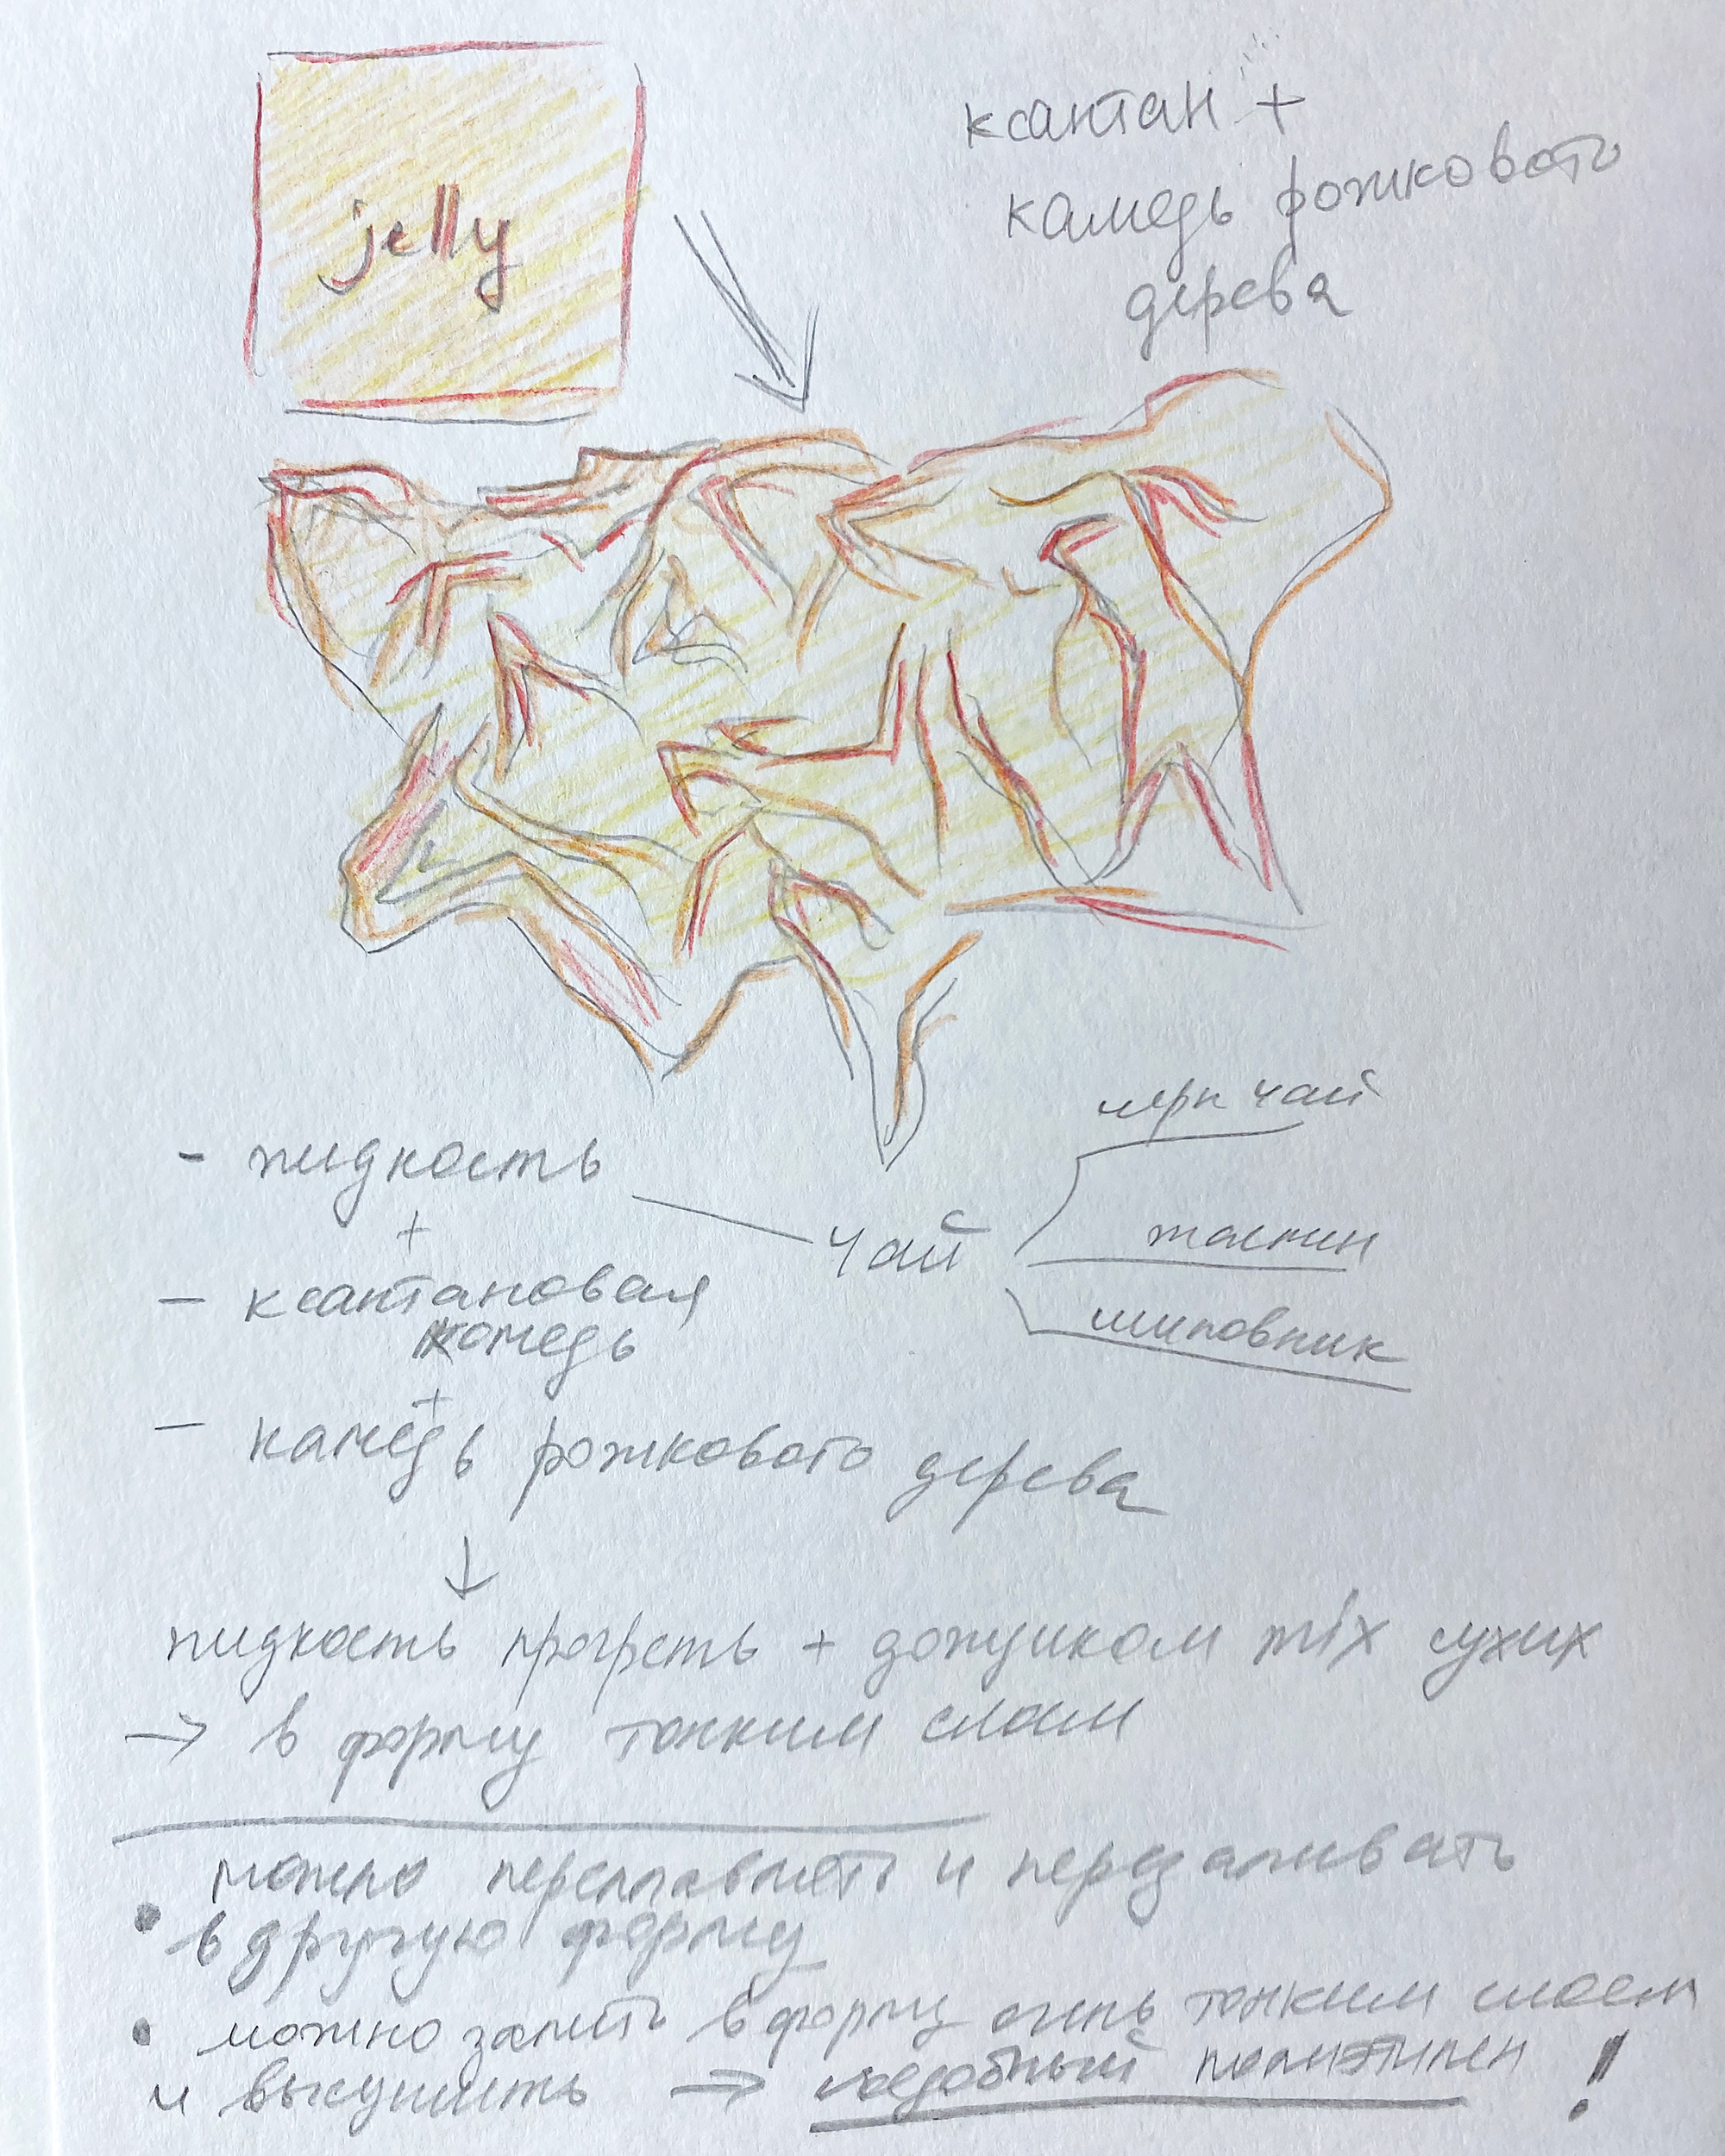 jelly
ксантан +
камедь рожкового
дерева
- жидкость
+
- ксантановая
камедь
+
- камедь рожкового дерева
чай
черн чай
жасмин
шиповник
↓
жидкость прогреть + дождиком mix сухих
→ в форму тонким слоем
• можно переплавлять и перезаливать
в другую форму
• можно залить в форму очень тонким слоем
и высушить → съедобный полиэтилен !